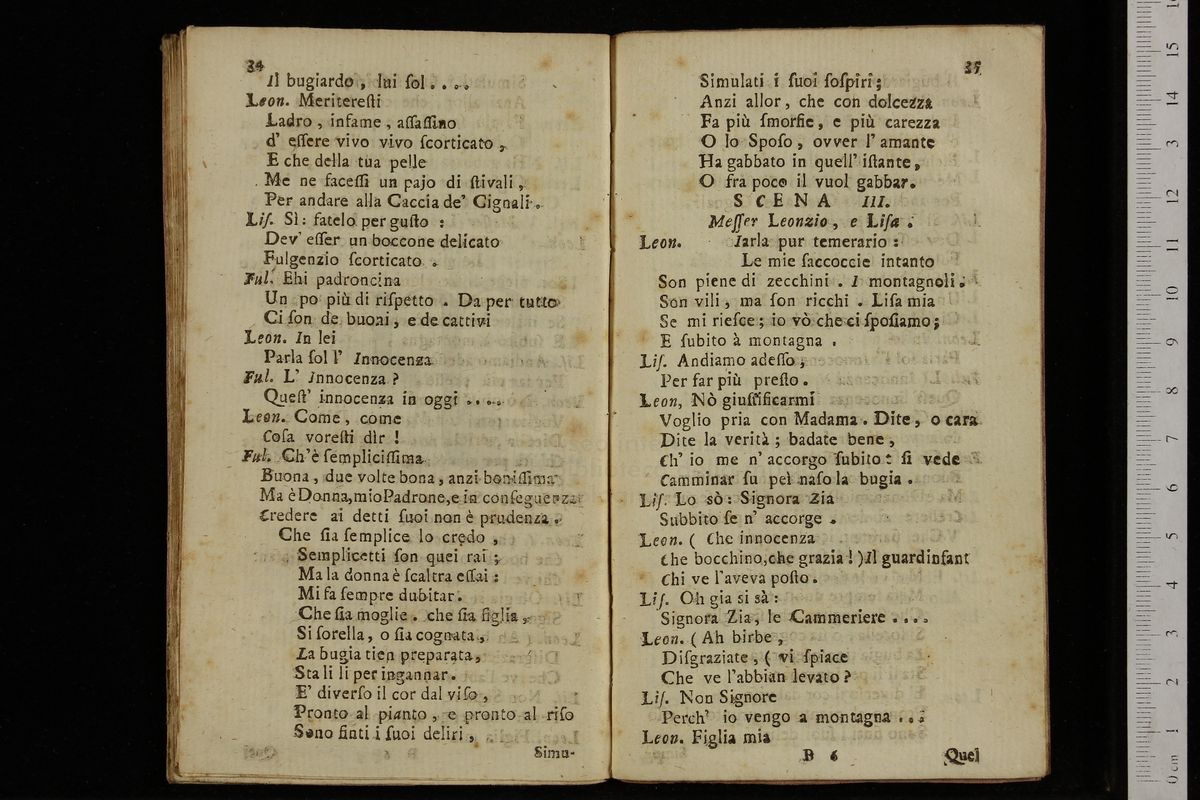 34
Il bugiardo , lui ſol . . . .
Leon. Meritereſti
Ladro , infame , aſſaſſino
d' eſſere vivo vivo ſcorticato ,
E che della tua pelle
Me ne faceſſi un pajo di ſtivali ,
Per andare alla Caccia de' Cignali .
Liſ. Sì : fatelo per guſto :
Dev' eſſer un boccone delicato
Fulgenzio ſcorticato .
Ful. Ehi padroncina
Un po più di riſpetto . Da per tutto
Ci ſon de buoni , e de cattivi
Leon. In lei
Parla ſol l' Innocenza
Ful. L' Innocenza ?
Queſt' innocenza in oggi . . . .
Leon. Come , come
Coſa voreſti dìr !
Ful. Ch'è ſempliciſſima
Buona , due volte bona , anzi boniſſima
Ma è Donna,mioPadrone,e in conſeguenza
Credere ai detti ſuoi non è prudenza .
Che ſia ſemplice lo credo ,
Semplicetti ſon quei rai ;
Ma la donna è ſcaltra eſſai :
Mi fa ſempre dubitar .
Che ſia moglie . che ſia figlia ,
Si ſorella , o ſia cognata ,
La bugia tien preparata ,
Sta li li per ingannar .
E' diverſo il cor dal viſo ,
Pronto al pianto , e pronto al riſo
Sono finti i ſuoi deliri ,
Simu-
35
Simulati i ſuoi ſoſpiri ;
Anzi allor , che con dolcezza
Fa più ſmorfie , e più carezza
O lo Spoſo , ovver l' amante
Ha gabbato in quell' iſtante ,
O fra poco il vuol gabbar .
SCENA III.
Meſſer Leonzio , e Liſa .
Leon. Iarla pur temerario :
Le mie ſaccoccie intanto
Son piene di zecchini . I montagnoli .
Son vili , ma ſon ricchi . Liſa mia
Se mi rieſce ; io vò che ci ſpoſiamo ;
E ſubito à montagna .
Liſ. Andiamo adeſſo ,
Per far più preſto .
Leon, Nò giuſtificarmi
Voglio pria con Madama . Dite , o cara
Dite la verità ; badate bene ,
Ch' io me n' accorgo ſubito : ſi vede
Camminar ſu pel naſo la bugia .
Liſ. Lo sò : Signora Zia
Subbito ſe n' accorge .
Leon. ( Che innocenza
Che bocchino,che grazia ! )Il guardinfant
Chi ve l'aveva poſto .
Liſ. Oh gia si sà :
Signora Zia , le Cammeriere . . . .
Leon. ( Ah birbe ,
Diſgraziate , ( vi ſpiace
Che ve l'abbian levato ?
Liſ. Non Signore
Perch' io vengo a montagna . . .
Leon. Figlia mia
B 6
Quel